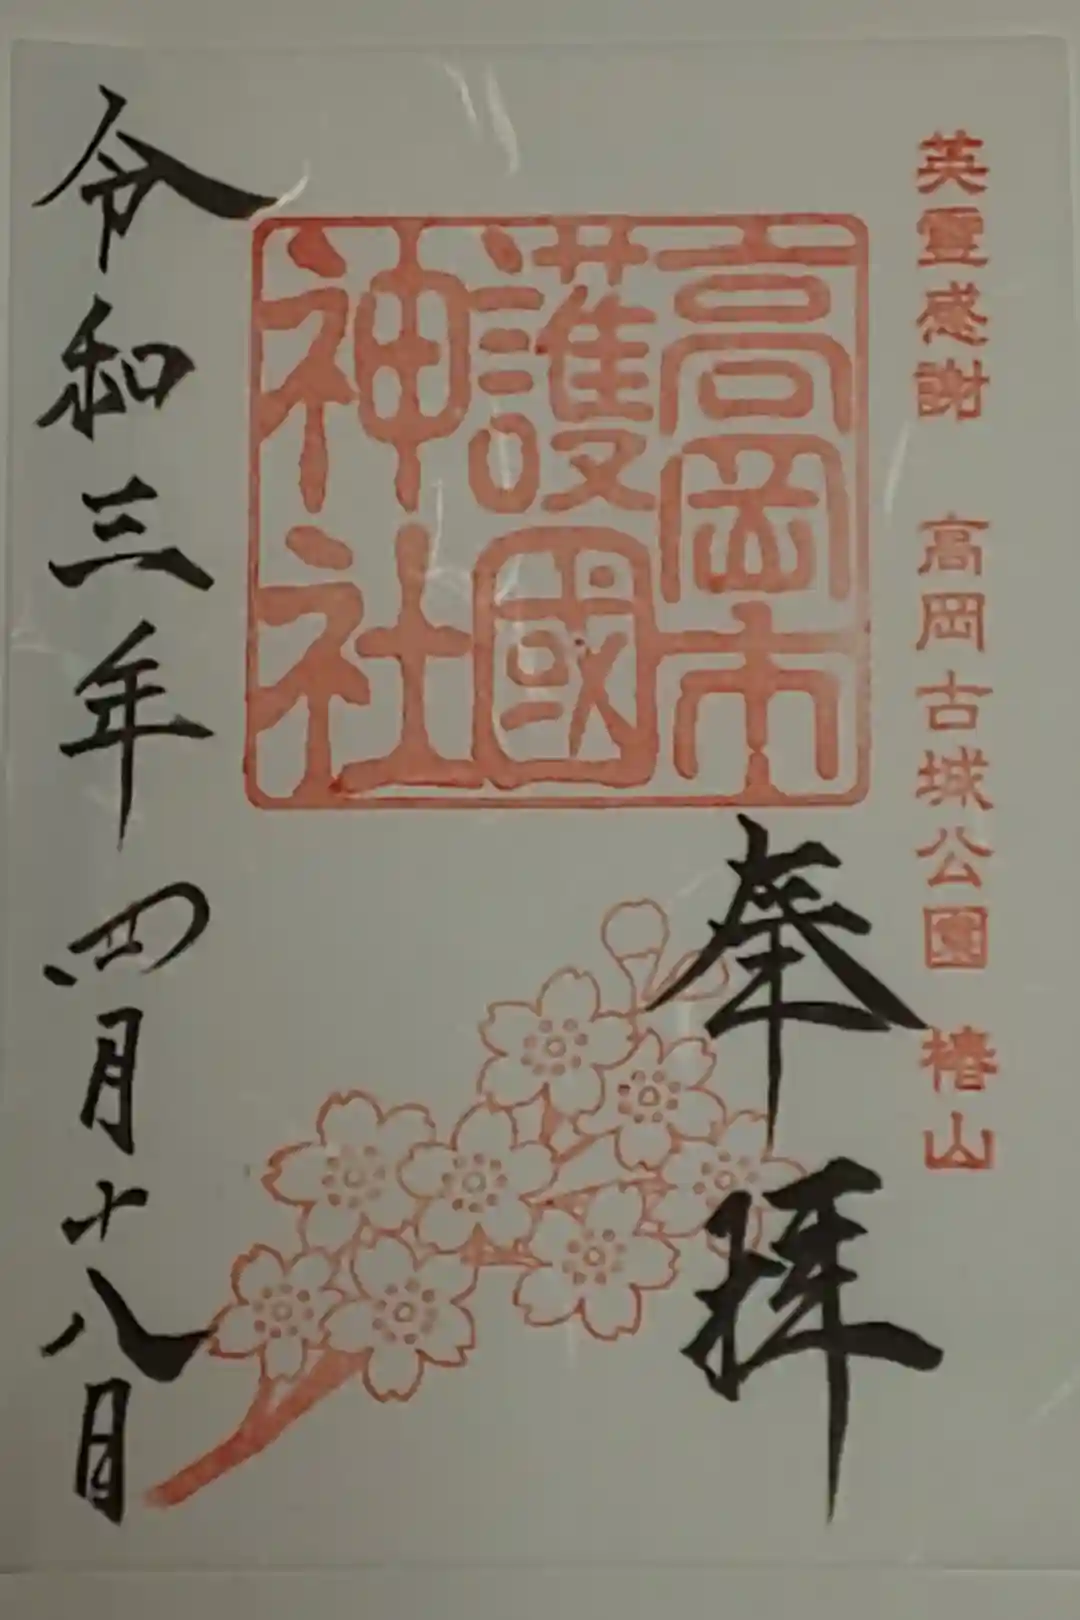 英霊感謝　高岡古城公園　椿山
奉拝
高岡市
護國
神社
令和三年四月十八日